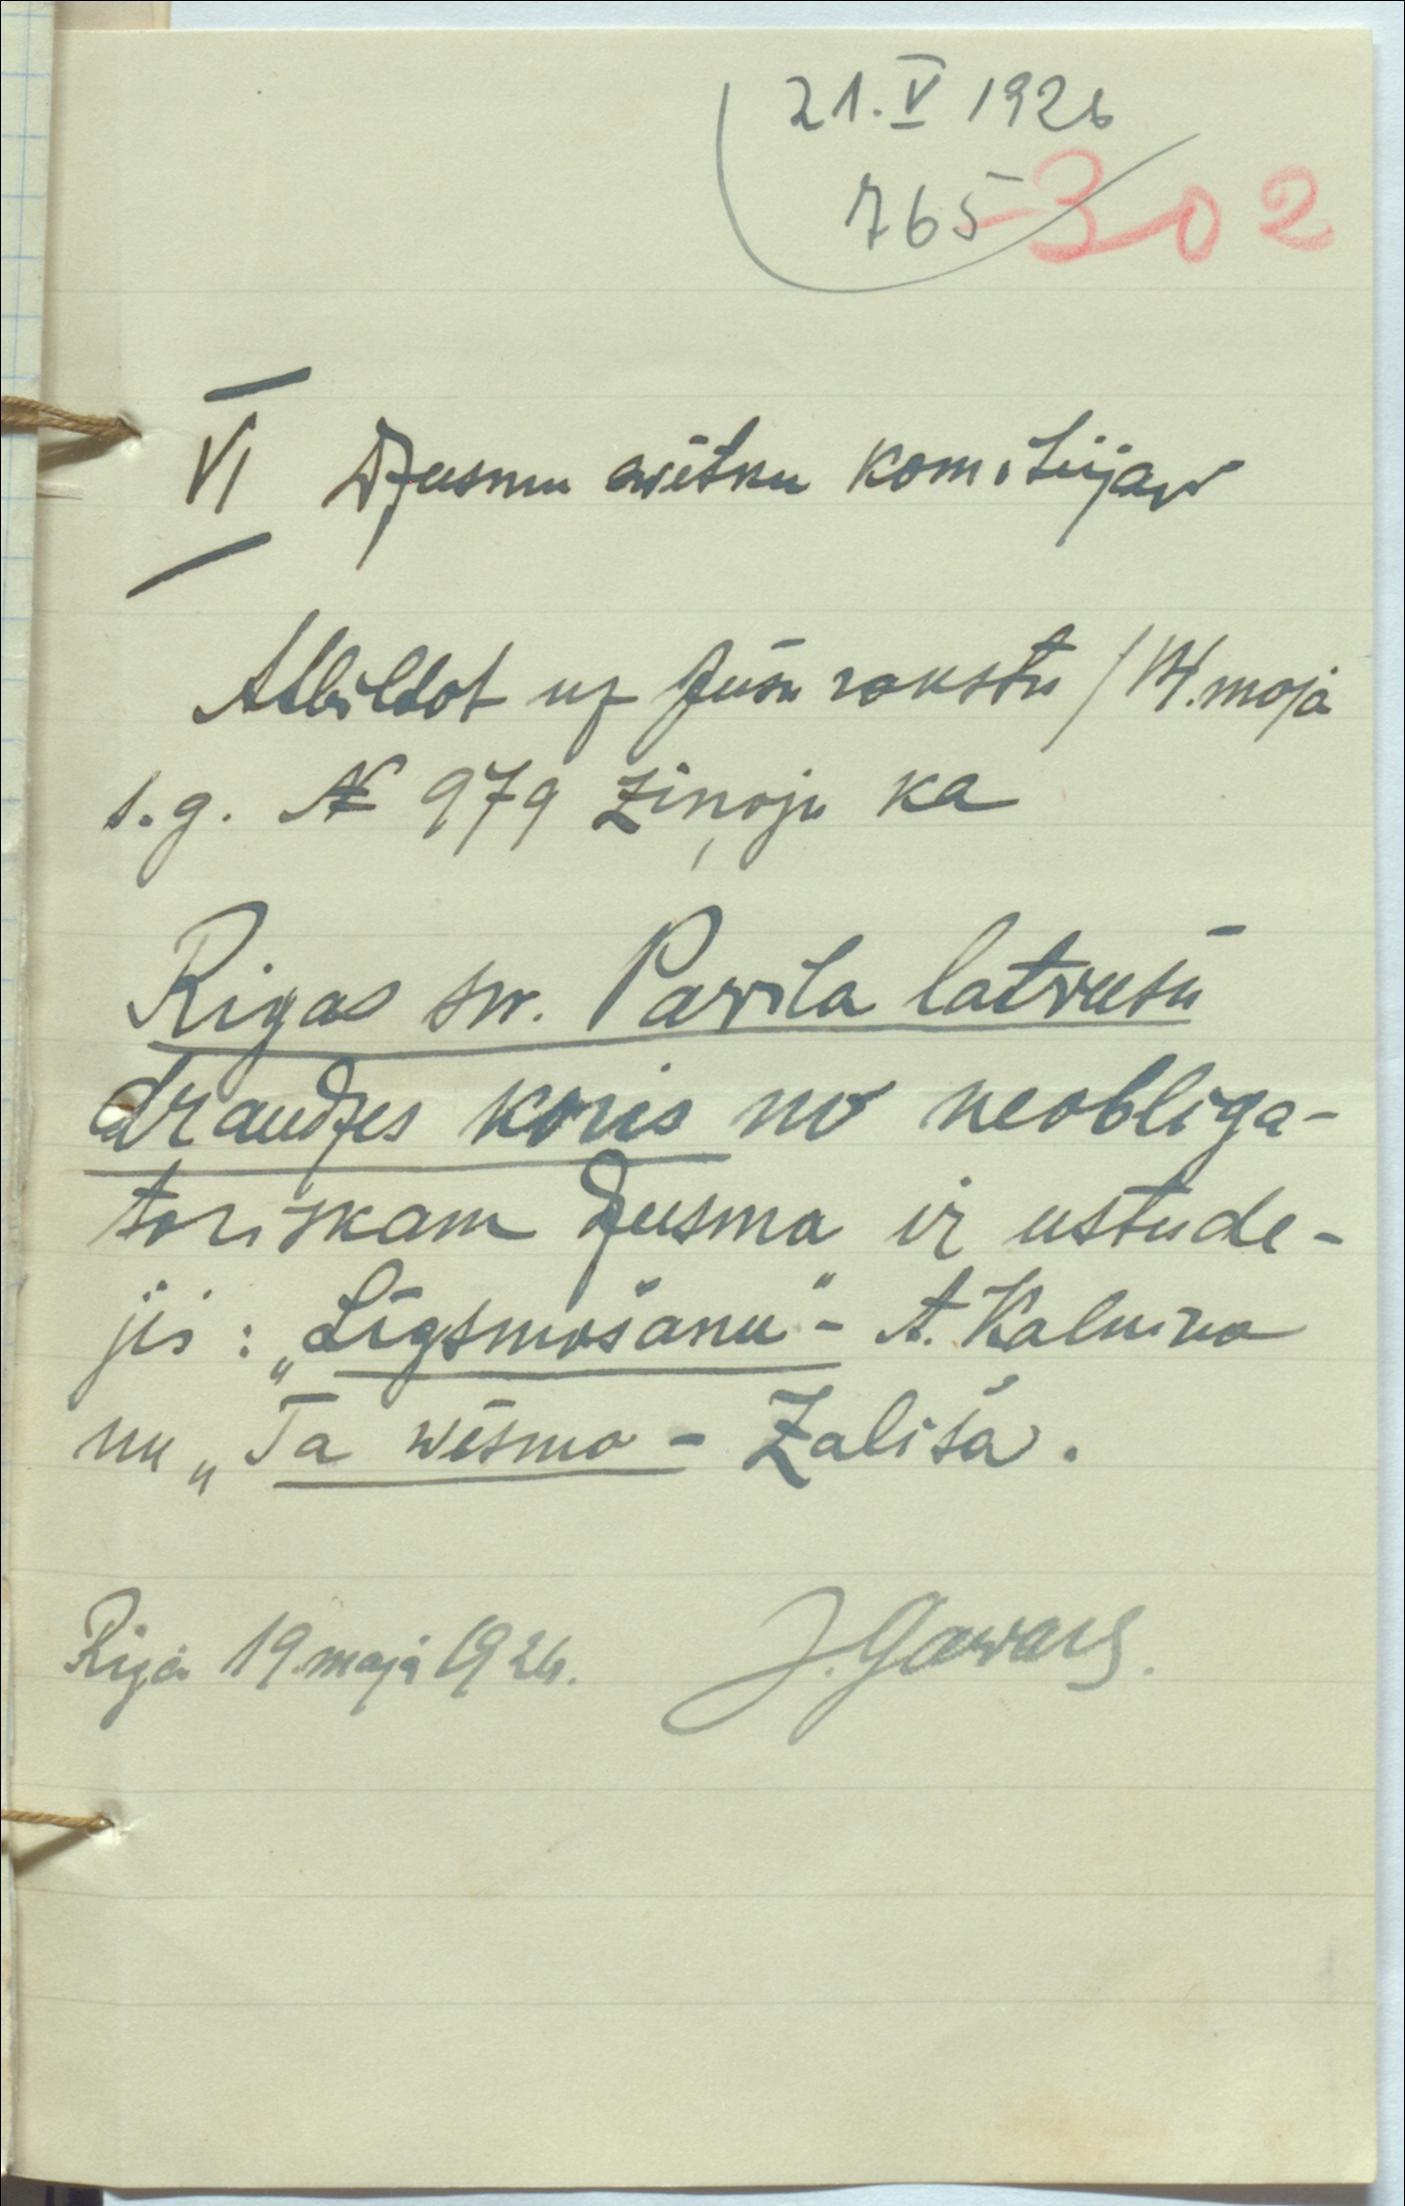 21. V 1926
765
302
VI Dzeesmu swētku komitejai
Atbildot uz Jūsu rakstu / 14. maja
s. g. № 979 ziņoju ka
Rigas sw. Pawila latweešu
draudzes koris no neobliga-
toriskam dzeesma ir eestude-
jis: „Līgsmošanu" - A. Kalniņa
un „Ta wēsma - Zališa.
Rigā 19. majā 1926. J. Gawars.